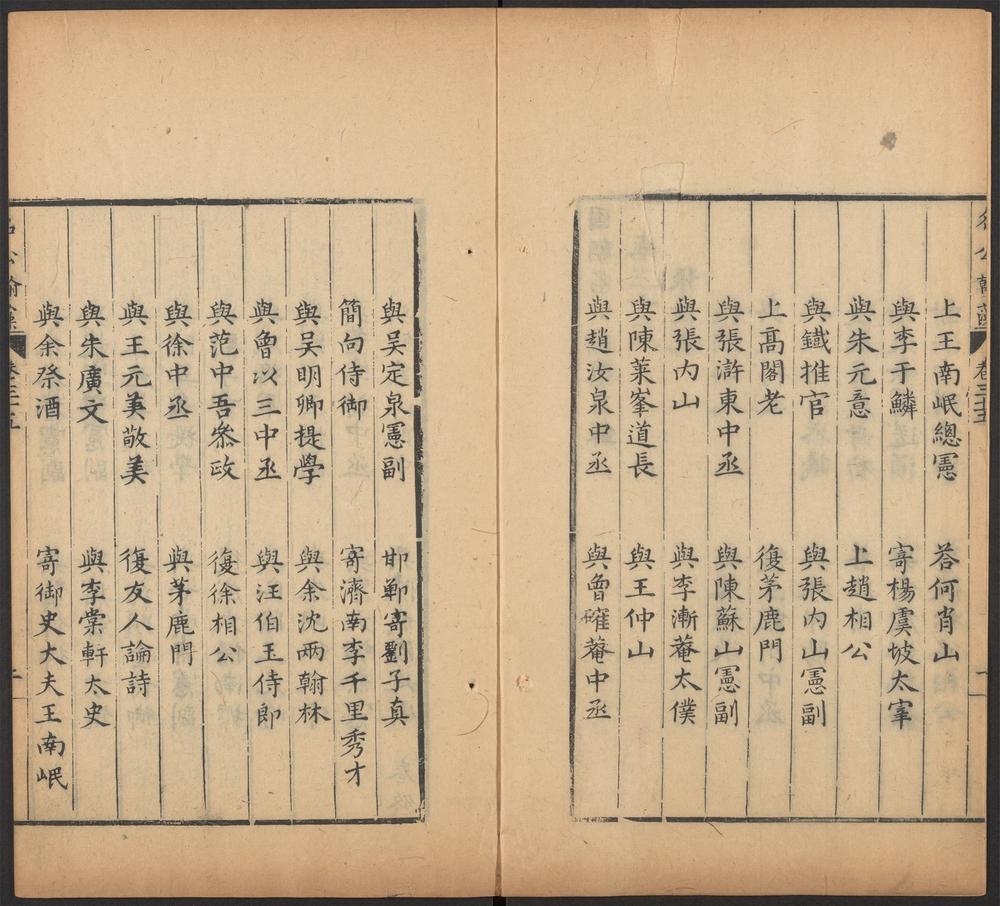 上王南岷總憲 荅何肖山
與李于鱗 寄楊虞坡太宰
與朱元意 上趙相公
與鐵推官 與張內山憲副
上高閣老 復茅鹿門
與張滸東中丞 與陳蘇山憲副
與張內山 與李漸菴太僕
與陳萊峯道長 與王仲山
與趙汝泉中丞 與曾確菴中丞
與吳定泉憲副 邯鄲寄劉子真
簡向侍御 寄濟南李千里秀才
與吳明卿提學 與余沈兩翰林
與曾以三中丞 與汪伯玉侍郎
與范中吾叅政 復徐相公
與徐中丞 與茅鹿門
與王元美敬美 復友人論詩
與朱廣文 與李棠軒太史
與余祭酒 寄御史大夫王南岷